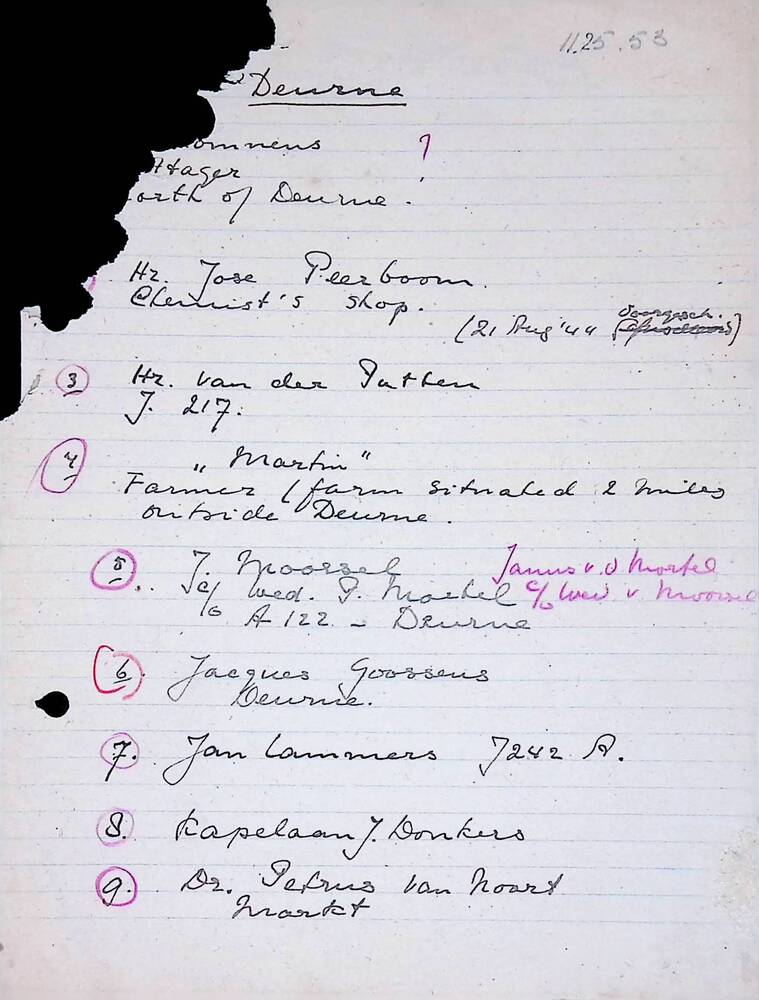 11.25.53
Deurne
omnens ?
ttager
orth of Deurne.
Hr. Jose Peerboom.
Chemist's shop.
(21 Aug '44 doorgesch.)
3 Hr. van der Putten
J. 217.
4 "Martin"
Farmer (farm situated 2 miles
outside Deurne.
5. J. Moorsel Janus v. d Mortel
c/o wed. P. Moorsel c/o Wed v Moorsel
A 122 - Deurne
6. Jacques Goossens
Deurne.
7. Jan Lammers J242 A.
8. Kapelaan J. Donkers
9. Dr. Petrus van Noort
Markt